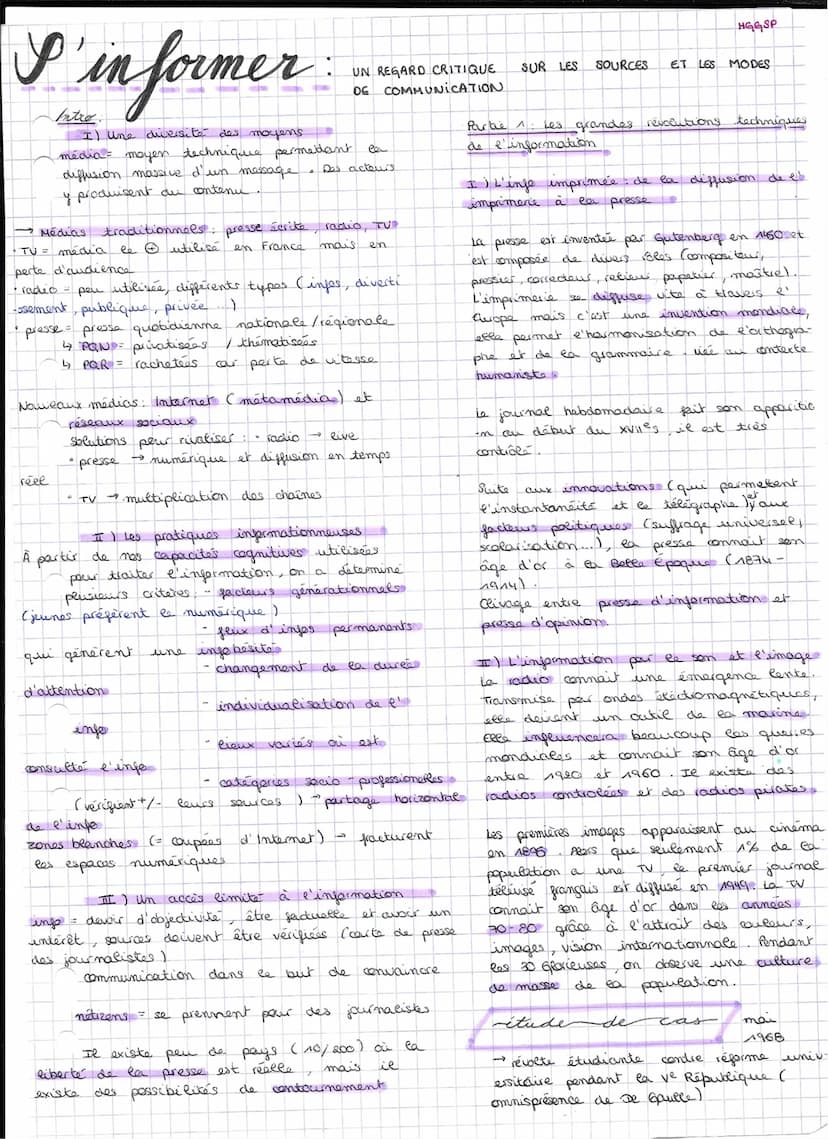 HGGSP
S'informer : UN REGARD CRITIQUE SUR LES SOURCES ET LES MODES
DE COMMUNICATION
Intro.
I) Une diversité des moyens
média = moyen technique permettant la
diffusion massive d'un message. Des acteurs
y produisent du contenu.
→ Médias traditionnels : presse écrite, radio, TV
• TV = média le ⊕ utilisé en France mais en
perte d'audience
• radio = peu utilisée, différents types (infos, diverti
-ssement, publique, privée ...)
• presse = presse quotidienne nationale/régionale
↳ PQN = privatisées / thématisées
↳ PQR = rachetées car perte de vitesse
Nouveaux médias : Internet (métamédia) et
réseaux sociaux
solutions pour rivaliser : • radio → live
• presse → numérique et diffusion en temps
réel
• TV → multiplication des chaînes
II) Les pratiques informationneuses
À partir de nos capacités cognitives utilisées
pour traiter l'information, on a déterminé
plusieurs critères : - facteurs générationnels
(jeunes préfèrent le numérique)
- feux d'infos permanents
qui génèrent une infobésité
- changement de la durée
d'attention
- individualisation de l'
info
- lieux variés où est
consulté l'info
- catégories socio-professionelles
(vérifient +/- leurs sources) → partage horizontal
de l'info
zones blanches (= coupées d'Internet) → facturent
les espaces numériques
III) Un accès limité à l'information
info = devoir d'objectivité, être factuelle et avoir un
intérêt, sources doivent être vérifiées (carte de presse
des journalistes)
communication dans le but de convaincre
nétizens = se prennent pour des journalistes
Il existe peu de pays (10/200) où la
liberté de la presse est réelle, mais il
existe des possibilités de contournement
Partie 1 : Les grandes révolutions techniques
de l'information
I) L'info imprimée : de la diffusion de l'
imprimerie à la presse
La presse est inventée par Gutenberg en 1450 et
est composée de divers rôles (compositeur,
pressier, correcteur, relieur, papetier, maître).
L'imprimerie se diffuse vite à travers l'
Europe mais c'est une invention mondiale,
elle permet l'harmonisation de l'orthogra-
phe et de la grammaire. Liée au contexte
humaniste.
Le journal hebdomadaire fait son apparitio
-n au début du XVIIe s, il est très
contrôlé.
Suite aux innovations (qui permettent
l'instantanéité et le télégraphe) et aux
facteurs politiques (suffrage universel,
scolarisation...), la presse connait son
âge d'or à la Belle Époque (1874-
1914).
Clivage entre presse d'information et
presse d'opinion.
II) L'information par le son et l'image
La radio connait une émergence lente.
Transmise par ondes électromagnétiques,
elle devient un outil de la marine.
Elle influencera beaucoup les guerres
mondiales et connait son âge d'or
entre 1920 et 1960. Il existe des
radios controlées et des radios pirates.
Les premières images apparaissent au cinéma
en 1895. Alors que seulement 1% de la
population a une TV, le premier journal
télévisé français est diffusé en 1949. La TV
connait son âge d'or dans les années
70-80 grâce à l'attrait des couleurs,
images, vision internationale. Pendant
les 30 Glorieuses, on observe une culture
de masse de la population.
étude de cas mai
1968
→ révolte étudiante contre réforme univ-
ersitaire pendant la Ve République (
omniprésence de De Gaulle)